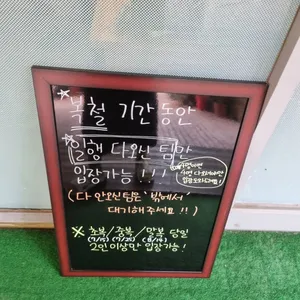 *복철 기간 동안
일행 다오신 팀만
입장가능 !!!
(다 안오신팀은 밖에서
대기해 주세요 !!)
※ 초복/중복/말복 당일
(7/15) (7/25) (8/14)
2인이상만 입장가능!